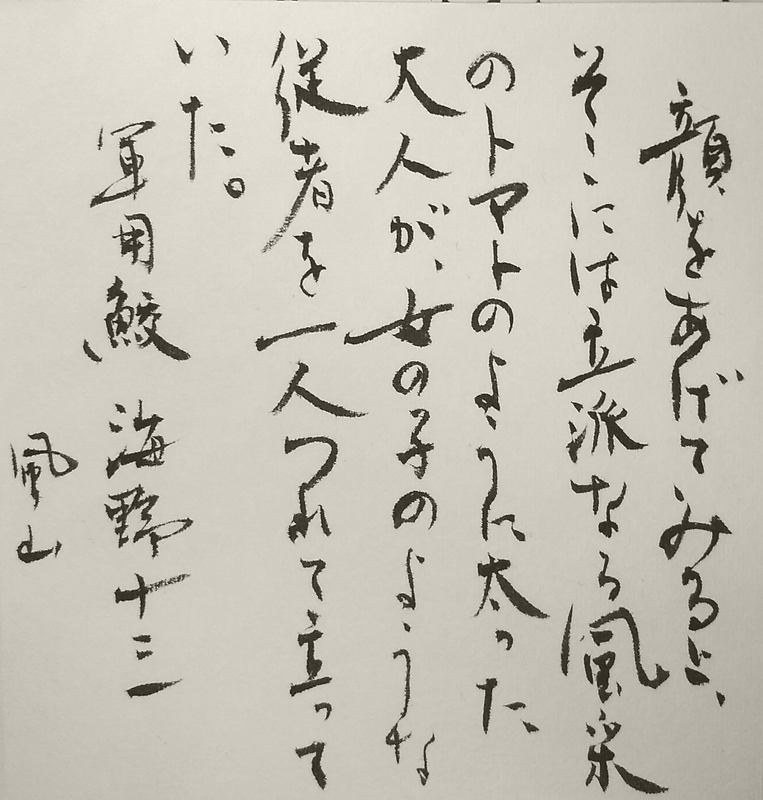 顔をあげてみると、
そこには立派なる風采
のトマトのように太った
大人が、女の子のような
従者を一人つれて立って
いた。
軍用鮫 海野十三
風山